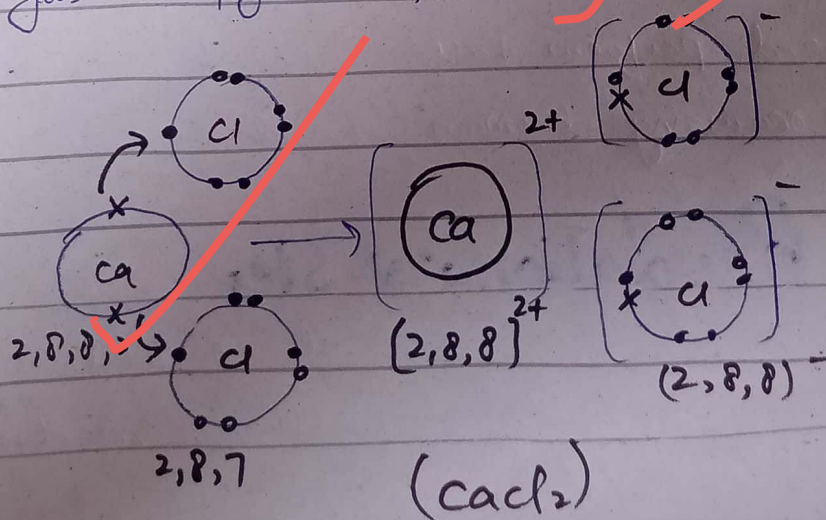 Cl
Ca
2,8,8,
Cl
2,8,7
Ca
2+
(2,8,8]2+
Cl
-
Cl
-
(2,8,8)-
(CaCl2)